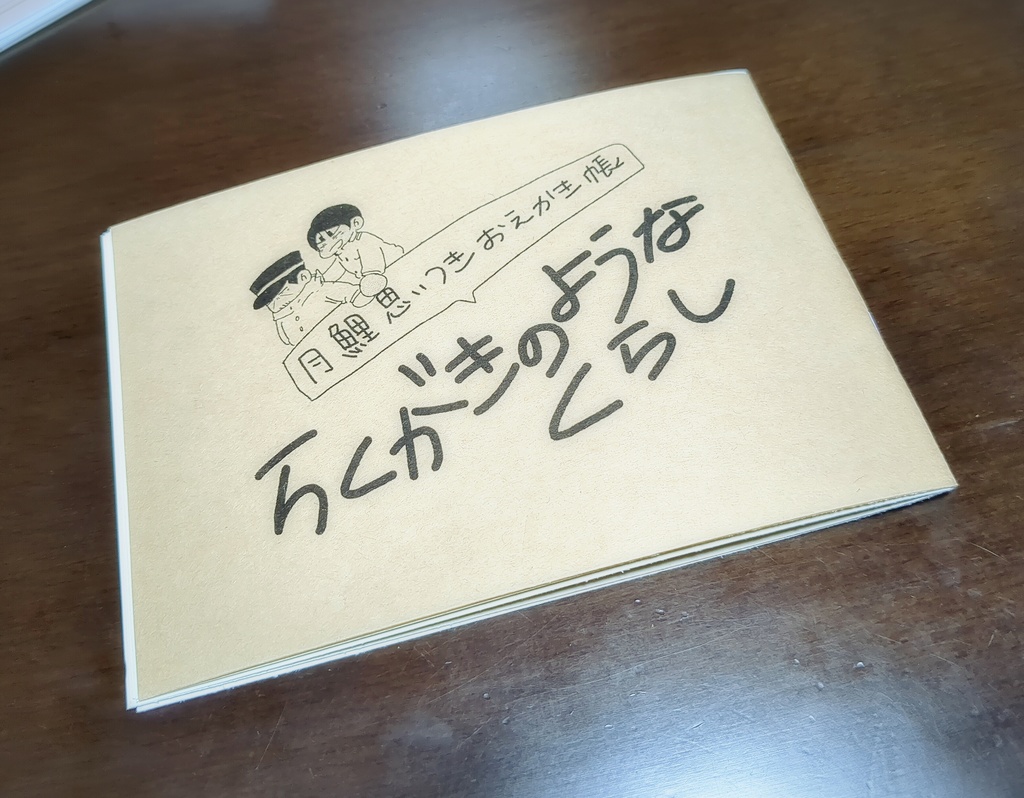 月鯉思いつきおえかき帳
らくがきのような
くらし